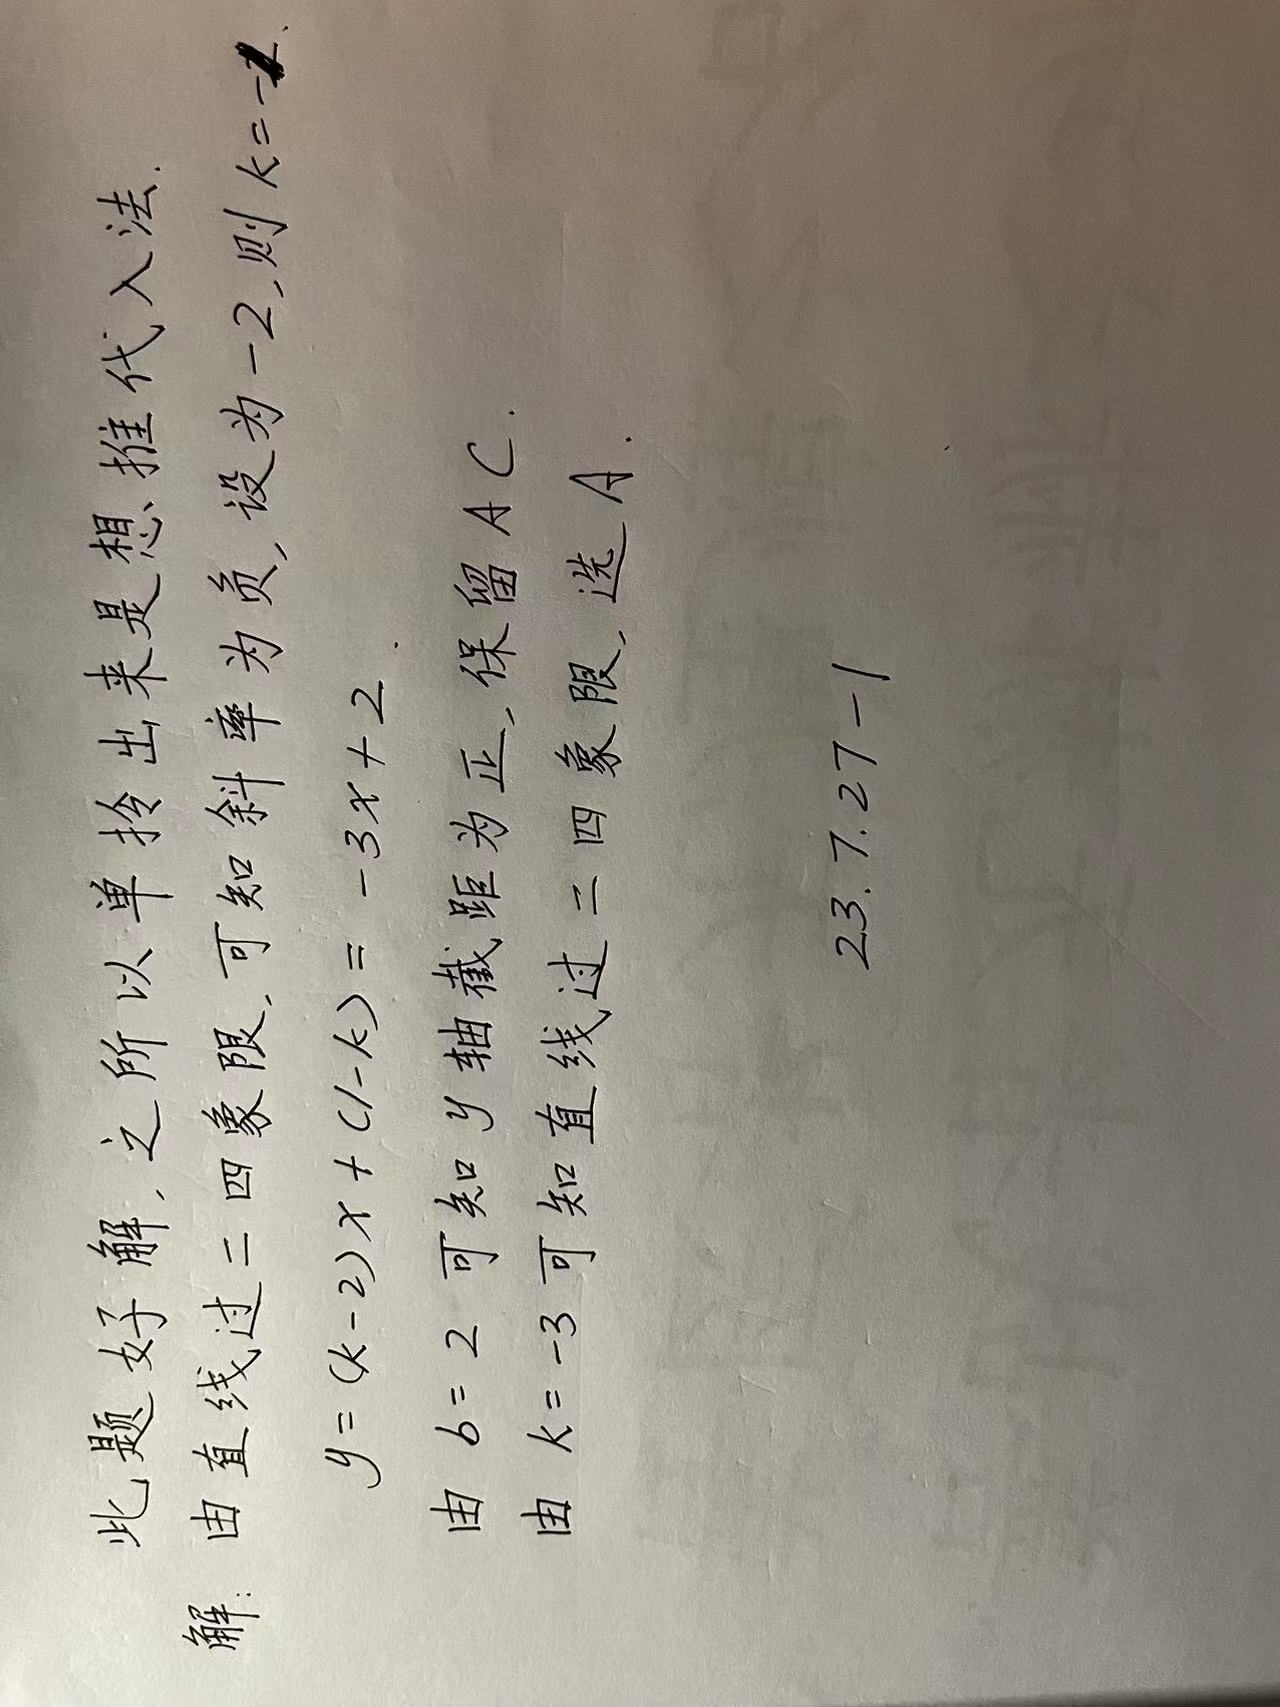 此题好解,之所以单拎出来是想推代入法.
解:由直线过二四象限,可知斜率为负,设为-2,则k=-1.
y=(k-2)x+(1-k)=-3x+2.
由b=2可知y轴截距为正,保留AC.
由k=-3可知直线过二四象限,选A.
23.7.27-1